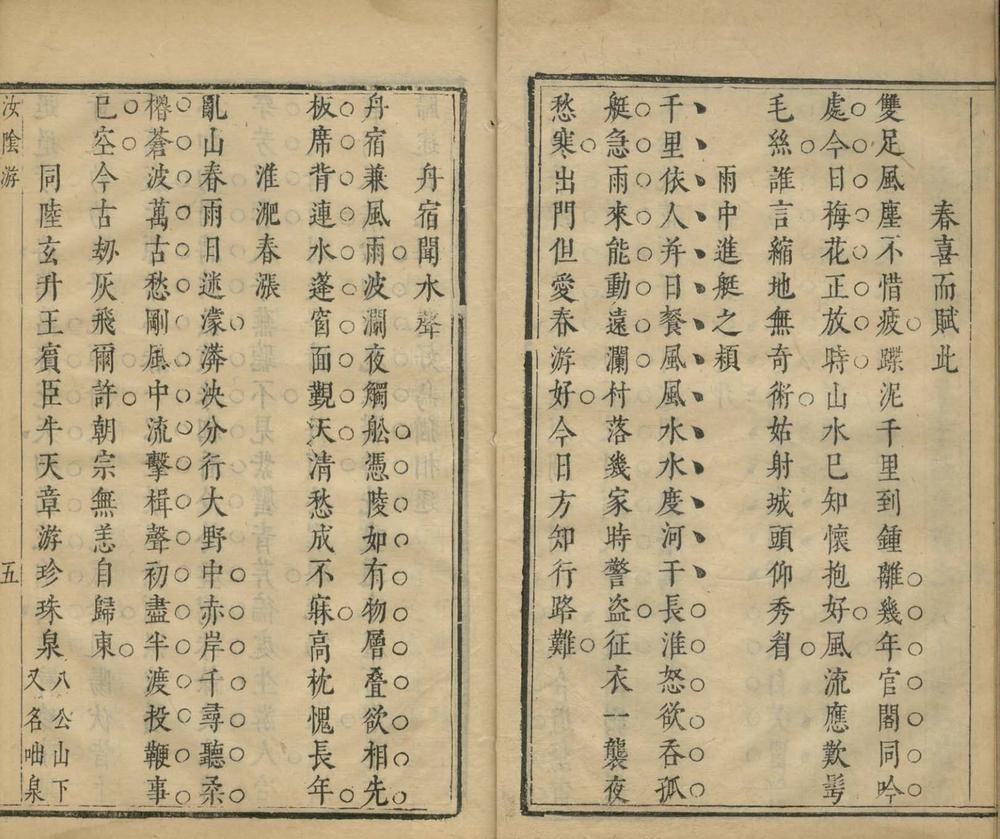 春喜而賦此
雙足風塵不惜疲蹀泥千里到鍾離幾年官閣同吟
處今日梅花正放時山水已知懷抱好風流應歎髩
毛絲誰言縮地無奇術姑射城頭仰秀眉
雨中進艇之穎
千里依人并日餐風風水水度河干長淮怒欲吞孤
艇急雨來能動遠瀾村落幾家時警盜征衣一襲夜
愁寒出門但愛春游好今日方知行路難
舟宿聞水聲
舟宿兼風雨波瀾夜觸舩憑陵如有物層叠欲相先
板席背連水蓬窗面覿天清愁成不寐高枕愧長年
淮淝春漲
亂山春雨日迷濛漭泱分行大野中赤岸千尋聽柔
櫓蒼波萬古愁剛風中流擊楫聲初盡半渡投鞭事
已空今古刼灰飛爾許朝宗無恙自歸東
同陸玄升王賓臣牛天章游珍珠泉八公山下
又名咄泉
汝陰游 五